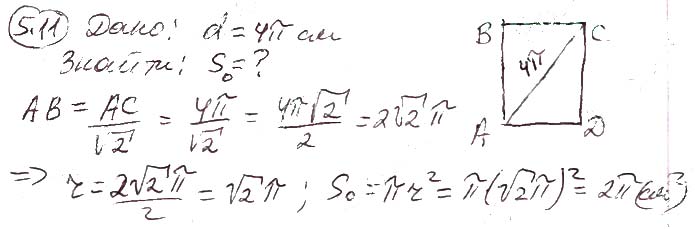 5.11 Дано: d = 4π см
Знайти: S₀ = ?
B C
4π
A D
AB = AC/√2 = 4π/√2 = 4π√2/2 = 2√2 π
=> r = 2√2 π/2 = √2 π ; S₀ = πr² = π(√2 π)² = 2π (см²)